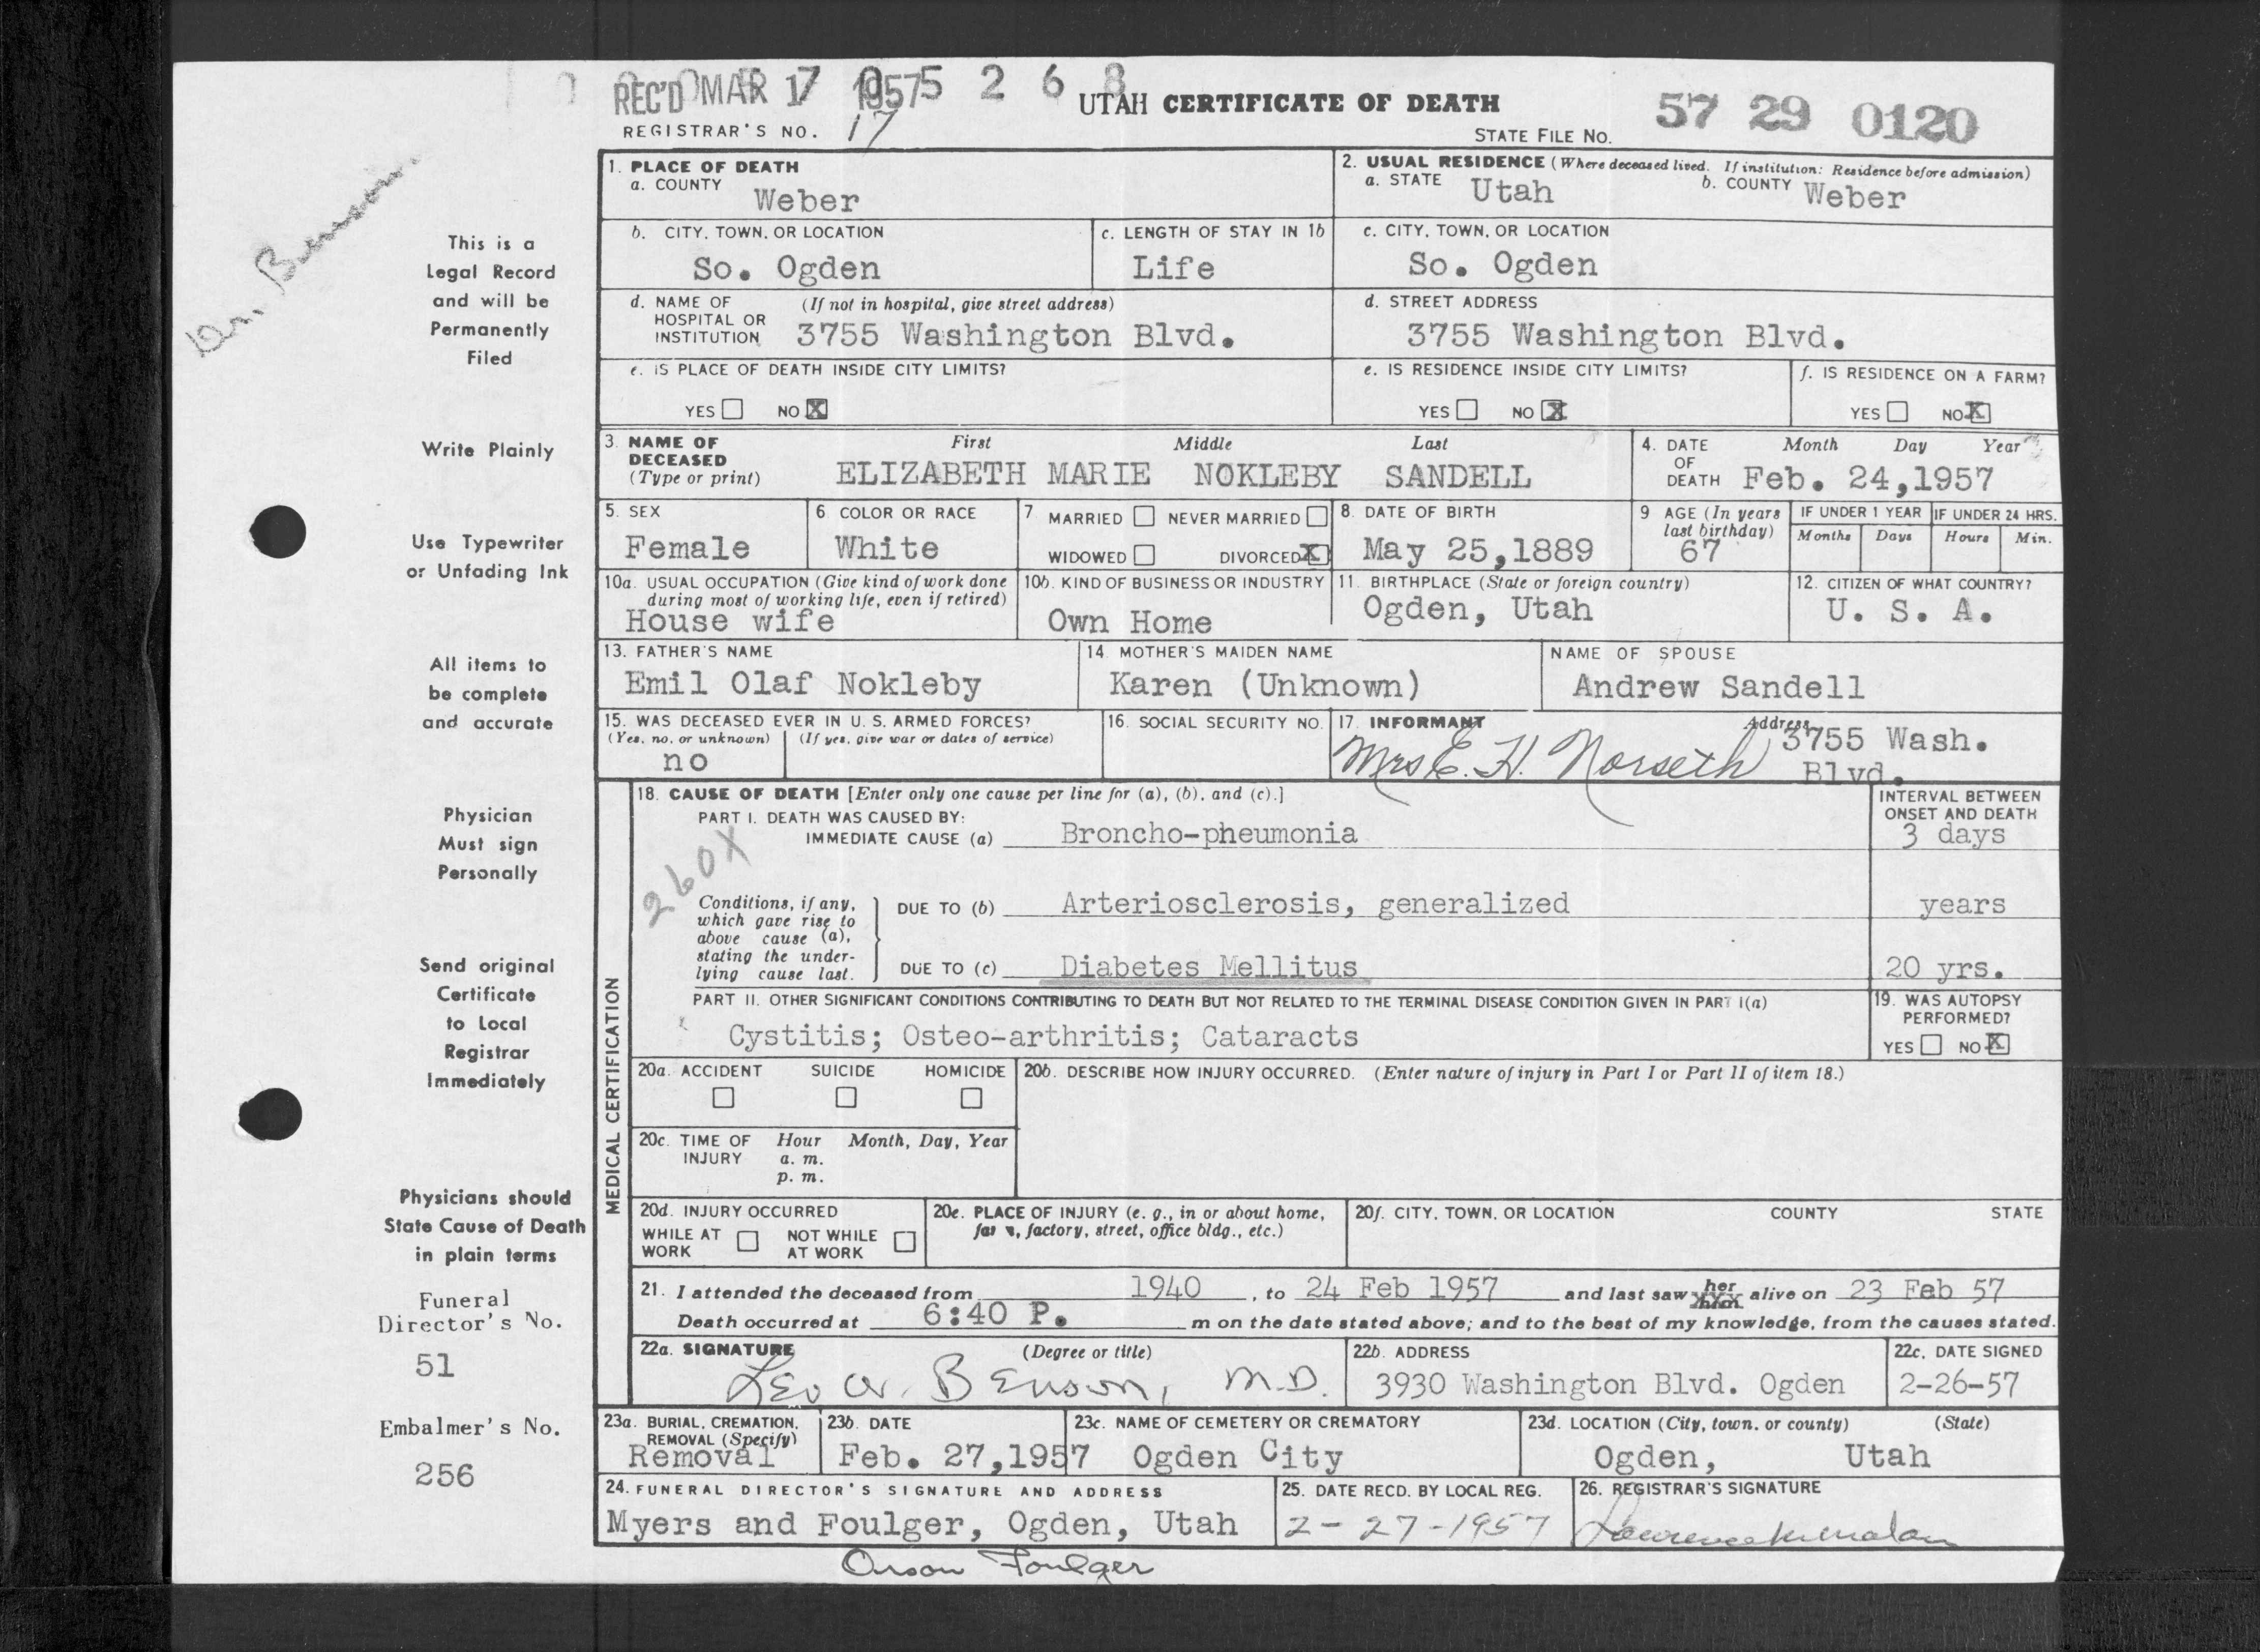 REC'D MAR 17 1957 5 2 6 8
UTAH CERTIFICATE OF DEATH
57 29 0120
REGISTRAR'S NO. 17
STATE FILE NO.
Dr. Benson
This is a
Legal Record
and will be
Permanently
Filed
Write Plainly
Use Typewriter
or Unfading Ink
All items to
be complete
and accurate
Physician
Must sign
Personally
Send original
Certificate
to Local
Registrar
Immediately
Physicians should
State Cause of Death
in plain terms
Funeral
Director's No.
51
Embalmer's No.
256
1. PLACE OF DEATH
a. COUNTY Weber
2. USUAL RESIDENCE (Where deceased lived. If institution: Residence before admission)
a. STATE Utah b. COUNTY Weber
b. CITY, TOWN, OR LOCATION
So. Ogden
c. LENGTH OF STAY IN 1b
Life
c. CITY, TOWN, OR LOCATION
So. Ogden
d. NAME OF HOSPITAL OR INSTITUTION (If not in hospital, give street address)
3755 Washington Blvd.
d. STREET ADDRESS
3755 Washington Blvd.
e. IS PLACE OF DEATH INSIDE CITY LIMITS?
YES NO X
e. IS RESIDENCE INSIDE CITY LIMITS?
YES NO X
f. IS RESIDENCE ON A FARM?
YES NO X
3. NAME OF DECEASED (Type or print)
First Middle Last
ELIZABETH MARIE NOKLEBY SANDELL
4. DATE OF DEATH Month Day Year
Feb. 24,1957
5. SEX
Female
6 COLOR OR RACE
White
7 MARRIED NEVER MARRIED
WIDOWED DIVORCED X
8. DATE OF BIRTH
May 25,1889
9 AGE (In years last birthday)
67
IF UNDER 1 YEAR
Months Days
IF UNDER 24 HRS.
Hours Min.
10a. USUAL OCCUPATION (Give kind of work done
during most of working life, even if retired)
House wife
10b. KIND OF BUSINESS OR INDUSTRY
Own Home
11. BIRTHPLACE (State or foreign country)
Ogden, Utah
12. CITIZEN OF WHAT COUNTRY?
U. S. A.
13. FATHER'S NAME
Emil Olaf Nokleby
14. MOTHER'S MAIDEN NAME
Karen (Unknown)
NAME OF SPOUSE
Andrew Sandell
15. WAS DECEASED EVER IN U. S. ARMED FORCES?
(Yes, no, or unknown) (If yes, give war or dates of service)
no
16. SOCIAL SECURITY NO.
17. INFORMANT
Mrs E. H. Norseth
Address
3755 Wash.
Blvd.
MEDICAL CERTIFICATION
18. CAUSE OF DEATH [Enter only one cause per line for (a), (b), and (c).]
PART I. DEATH WAS CAUSED BY:
IMMEDIATE CAUSE (a) Broncho-pheumonia
INTERVAL BETWEEN
ONSET AND DEATH
3 days
260X
Conditions, if any,
which gave rise to
above cause (a),
stating the under-
lying cause last.
DUE TO (b) Arteriosclerosis, generalized
years
DUE TO (c) Diabetes Mellitus
20 yrs.
PART II. OTHER SIGNIFICANT CONDITIONS CONTRIBUTING TO DEATH BUT NOT RELATED TO THE TERMINAL DISEASE CONDITION GIVEN IN PART I(a)
Cystitis; Osteo-arthritis; Cataracts
19. WAS AUTOPSY
PERFORMED?
YES NO X
20a. ACCIDENT SUICIDE HOMICIDE
20b. DESCRIBE HOW INJURY OCCURRED. (Enter nature of injury in Part I or Part II of item 18.)
20c. TIME OF INJURY Hour Month, Day, Year
a. m.
p. m.
20d. INJURY OCCURRED
WHILE AT WORK NOT WHILE AT WORK
20e. PLACE OF INJURY (e. g., in or about home,
farm, factory, street, office bldg., etc.)
20f. CITY, TOWN, OR LOCATION COUNTY STATE
21. I attended the deceased from 1940, to 24 Feb 1957 and last saw her him alive on 23 Feb 57
Death occurred at 6:40 P. m on the date stated above; and to the best of my knowledge, from the causes stated.
22a. SIGNATURE (Degree or title)
Leo W. Benson, M.D.
22b. ADDRESS
3930 Washington Blvd. Ogden
22c. DATE SIGNED
2-26-57
23a. BURIAL, CREMATION,
REMOVAL (Specify)
Removal
23b. DATE
Feb. 27,1957
23c. NAME OF CEMETERY OR CREMATORY
Ogden City
23d. LOCATION (City, town, or county) (State)
Ogden, Utah
24. FUNERAL DIRECTOR'S SIGNATURE AND ADDRESS
Myers and Foulger, Ogden, Utah
25. DATE RECD. BY LOCAL REG.
2-27-1957
26. REGISTRAR'S SIGNATURE
Orson Foulger